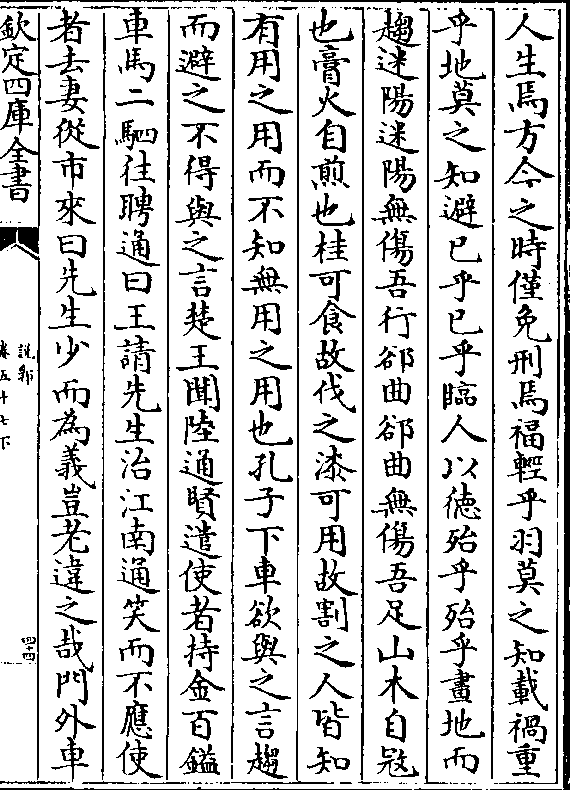 人生焉方今之時僅免刑焉福輕乎羽莫之知載禍重
乎地莫之知避已乎已乎臨人以德殆乎殆乎畫地而
趨迷陽迷陽無傷吾行郤曲郤曲無傷吾足山木自寇
也膏火自煎也桂可食故伐之漆可用故割之人皆知
有用之用而不知無用之用也孔子下車欲與之言趨
而避之不得與之言楚王聞陸通賢遣使者持金百鎰
車馬二駟往聘通曰王請先生治江南通笑而不應使
者去妻從市來曰先生少而為義豈老違之哉門外車
欽定四庫全書
說郛
卷五十七下
四十四